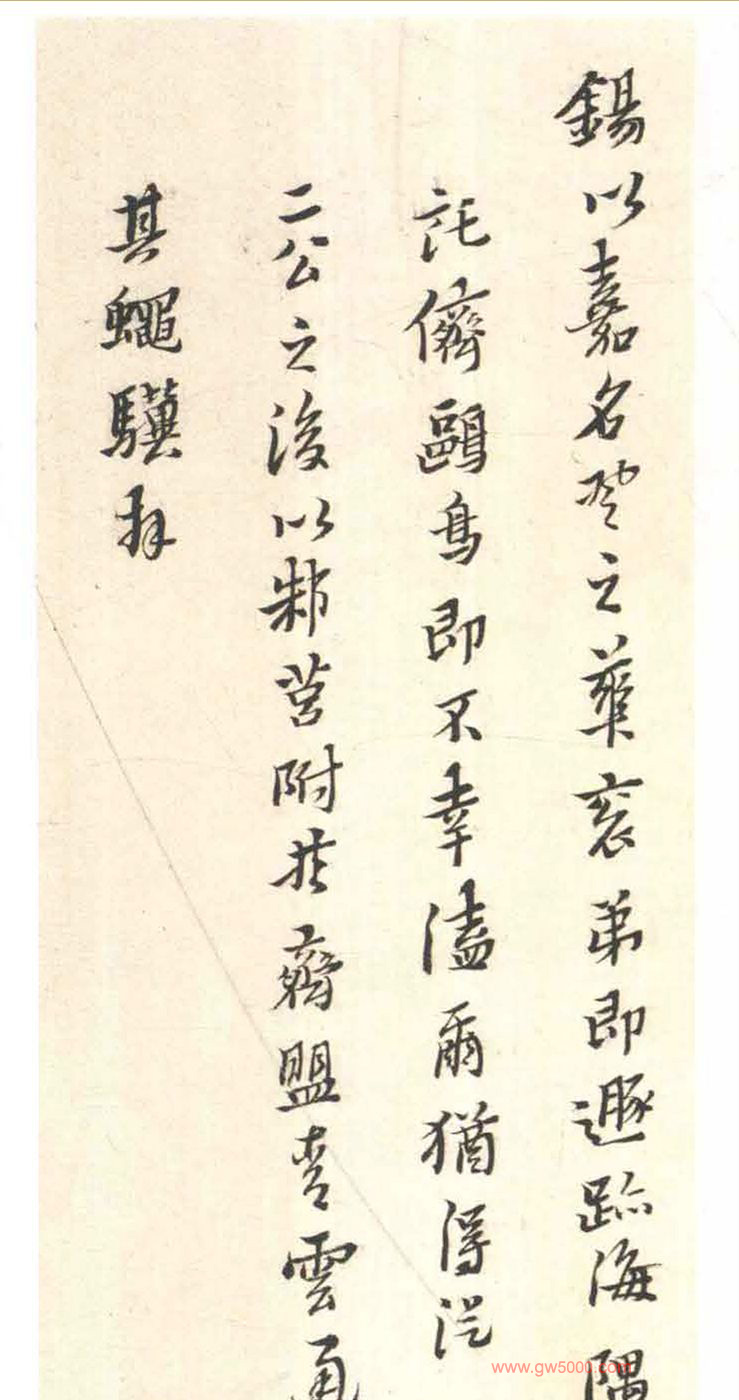 錫以嘉名登之華衮弟即遯跡海隅
託儕鷗鳥即不幸溘爾猶得從
二公之後以邾莒附於齊盟青雲
其蠅驥拜
www.gw5000.com